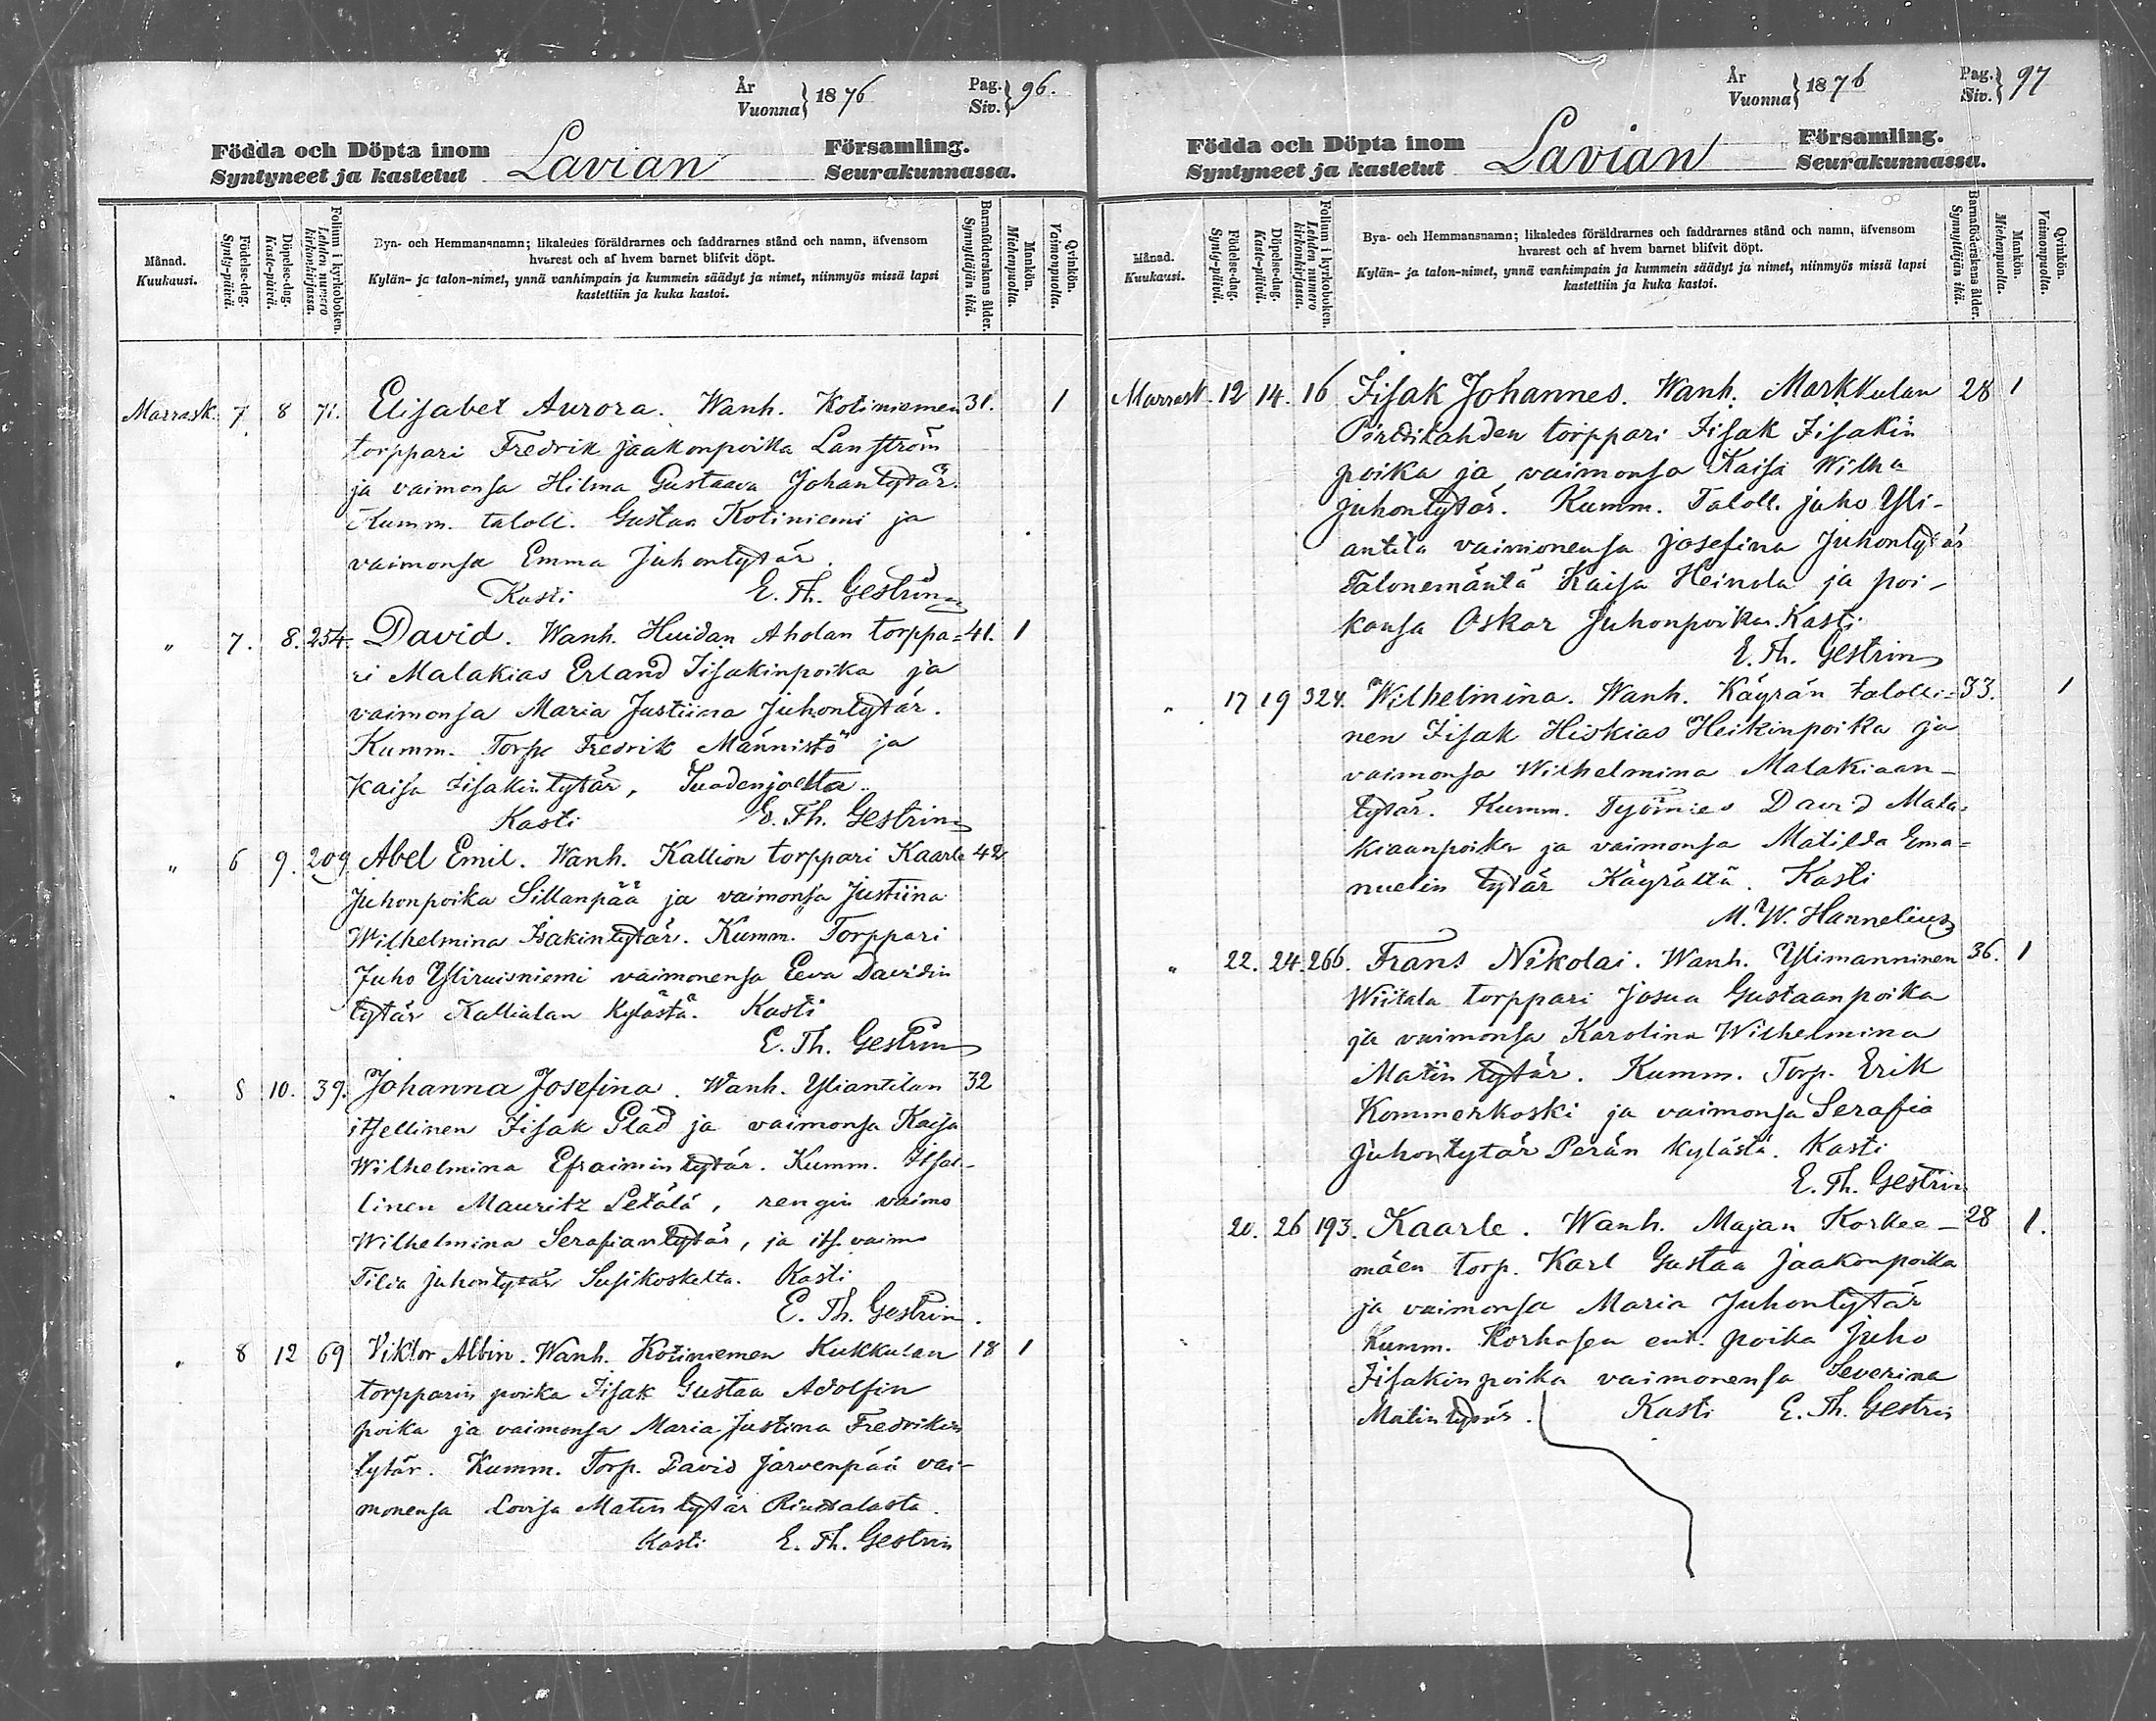 År
Vuonna } 1876 Pag. Siv. } 96.
Födda och Döpta inom Lavian Församling.
Syntyneet ja kastetut Seurakunnassa.
Månad. Kuukausi.
Födelse-dag. Synty-päivä.
Döpelse-dag. Kaste-päivä.
Folium i kyrkoboken. Lehden numero kirkonkirjassa.
Bya- och Hemmansnamn; likaledes föräldrarnes och faddrarnes stånd och namn, äfvensom
hvarest och af hvem barnet blifvit döpt.
Kylän- ja talon-nimet, ynnä vanhimpain ja kummein säädyt ja nimet, niinmyös missä lapsi
kastettiin ja kuka kastoi.
Barnaföderskans ålder. Synnyttäjän ikä.
Mankön. Miehenpuolta.
Qvinkön. Vaimonpuolta.
Marrask. 7. 8 71. Elisabet Aurora. Wanh. Kotiniemen 31. 1
torppari Fredrik Jaakonpoika Lanström
ja vaimonsa Hilma Gustaava Johantytär.
Kumm. taloll. Gustaa Kotiniemi ja
vaimonsa Emma Juhontytär.
Kasti E. Th. Gestrin
" 7. 8. 254. David. Wanh. Huidan Aholan torppa= 41. 1
ri Malakias Erland Iisakinpoika ja
vaimonsa Maria Justiina Juhontytär.
Kumm. Torp. Fredrik Männistö ja
Kaisa Iisakintytär, Suodenjoelta.
Kasti E. Th. Gestrin
" 6 9. 209. Abel Emil. Wanh. Kallion torppari Kaarle 42
Juhonpoika Sillanpää ja vaimonsa Justiina
Wilhelmina Isakintytär. Kumm. Torppari
Juho Yliruisniemi vaimonensa Eeva Davidin
tytär Kallialan kylästä. Kasti
E. Th. Gestrin
" 8 10. 39. Johanna Josefina. Wanh. Yliantilan 32
itsellinen Iisak Glad ja vaimonsa Kaisa
Wilhelmina Efraimintytär. Kumm. Itsel-
linen Mauritz Setälä, rengin vaimo
Wilhelmina Serafiantytär, ja its. vaimo
Tilda Juhontytär Susikoskelta. Kasti
E. Th. Gestrin.
" 8 12 69 Viktor Albin. Wanh. Kotiniemen Kukkulan 18 1
torpparin poika Iisak Gustaa Adolfin
poika ja vaimonsa Maria Justina Fredrikin
tytär. Kumm. Torp. David Järvenpää vai-
monensa Lovisa Matintytär Riudsalasta.
Kasti E. Th. Gestrin
År
Vuonna } 1876 Pag. Siv. } 97
Födda och Döpta inom Lavian Församling.
Syntyneet ja kastetut Seurakunnassa.
Månad. Kuukausi.
Födelse-dag. Synty-päivä.
Döpelse-dag. Kaste-päivä.
Folium i kyrkoboken. Lehden numero kirkonkirjassa.
Bya- och Hemmansnamn; likaledes föräldrarnes och faddrarnes stånd och namn, äfvensom
hvarest och af hvem barnet blifvit döpt.
Kylän- ja talon-nimet, ynnä vanhimpain ja kummein säädyt ja nimet, niinmyös missä lapsi
kastettiin ja kuka kastoi.
Barnaföderskans ålder. Synnyttäjän ikä.
Mankön. Miehenpuolta.
Qvinkön. Vaimonpuolta.
Marrask. 12 14. 16 Iisak Johannes. Wanh. Markkulan 28 1
torppari Iisak Iisakin
poika ja vaimonsa Kaisa Wilha
Juhontytär. Kumm. Taloll. Juho Yli-
antila vaimonensa Josefina Juhontytär
Talonemäntä Kaisa Heinola ja poi-
kansa Oskar Juhonpoika. Kasti
E. Th. Gestrin
" 17 19 324. Wilhelmina. Wanh. Käyrän talolli- 33. 1
nen Iisak Hiskias Heikinpoika ja
vaimonsa Wilhelmina Malakiaan-
tytär. Kumm. Työmies David Mala-
kiaanpoika ja vaimonsa Matilda Ema=
nuelin tytär Käyrältä. Kasti
M. W. Hannelius
" 22. 24. 266. Frans Nikolai. Wanh. Ylimanninen 36. 1
Wiitala torppari Josua Gustaanpoika
ja vaimonsa Karolina Wilhelmina
Matin tytär. Kumm. Torp. Erik
Kommerkoski ja vaimonsa Serafia
Juhontytär Perän kylästä. Kasti
E. Th. Gestrin
20. 26 193. Kaarle. Wanh. Majan Korkee- 28 1.
mäen torp. Karl Gustaa Jaakonpoika
ja vaimonsa Maria Juhontytär
Kumm. Korhosen ent. poika Juho
Iisakinpoika vaimonensa Severina
Matintytär. Kasti E. Th. Gestrin